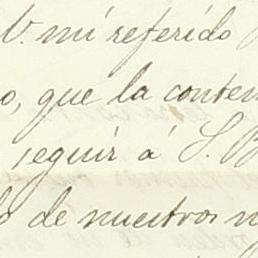 V. mi referido
o, que la conten
seguir á S. B
lo de nuestros n